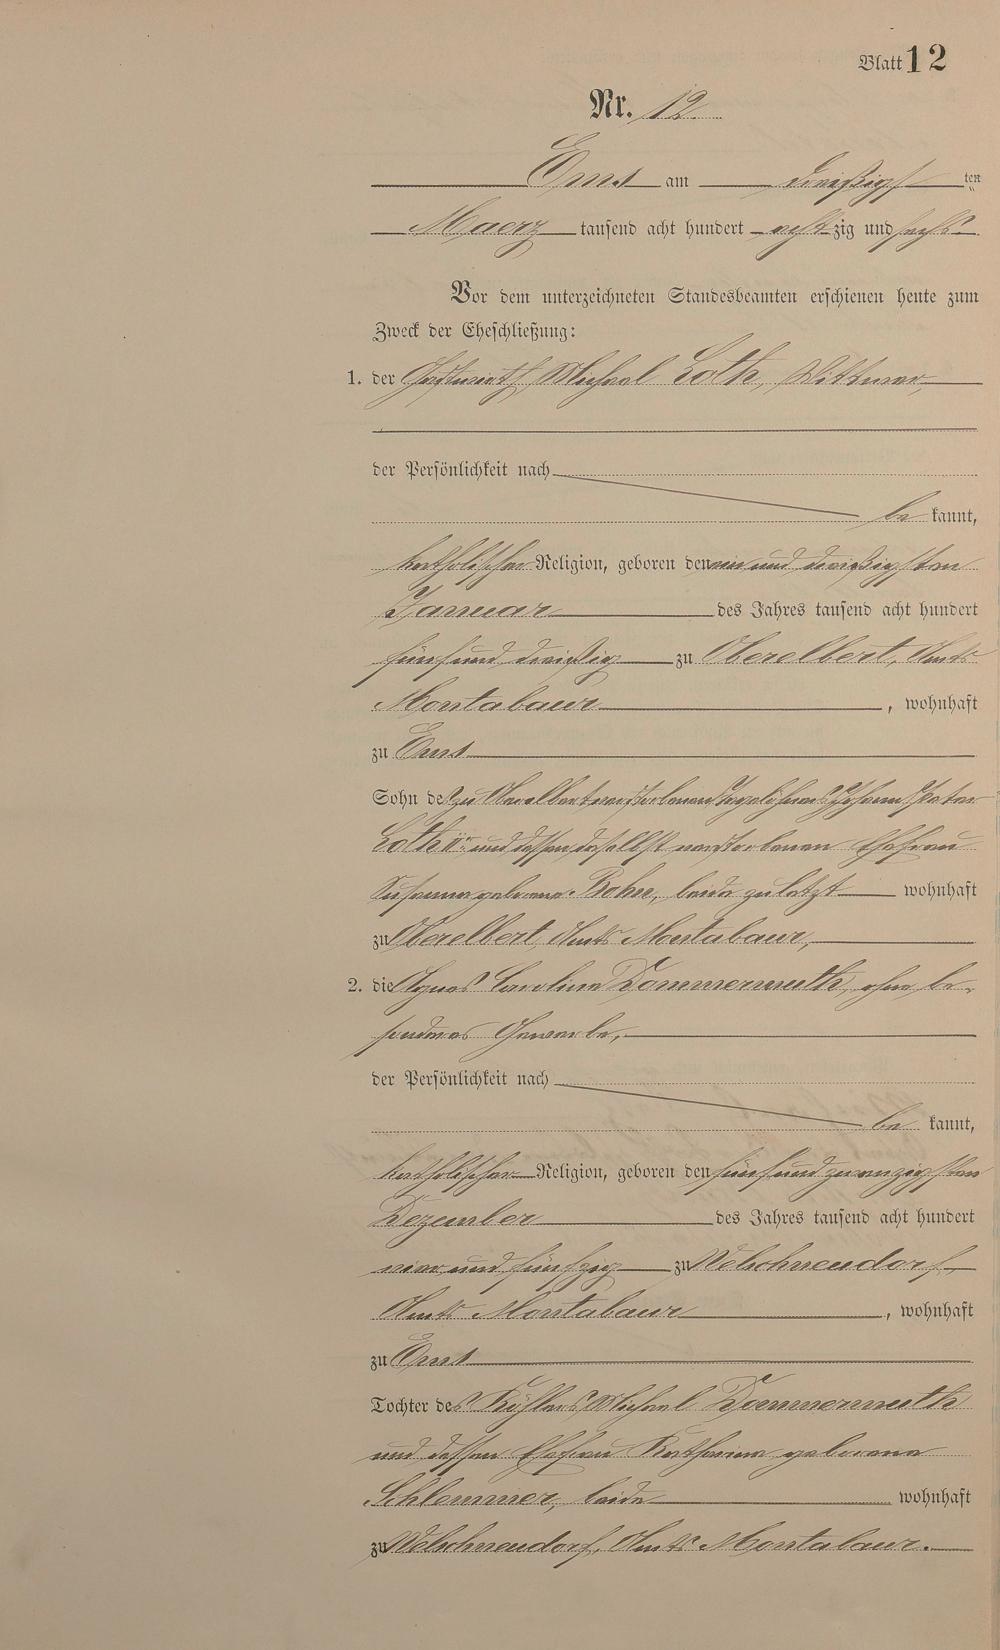 Blatt 12
Nr. 12.
Ems am dreißigsten
Maerz tausend acht hundert achtzig und sechs.
Vor dem unterzeichneten Standesbeamten erschienen heute zum
Zweck der Eheschließung:
1. der Gastwirth Michael Loth, Wittwer,
der Persönlichkeit nach
be kannt,
katholischer Religion, geboren den ein und dreißigsten
Januar des Jahres tausend acht hundert
fünf und dreißig zu Oberelbert, Amts
Montabaur, wohnhaft
zu Ems
Sohn des zu Oberelbert verstorbenen Tagelöhners Johann Peter
Loth IIr und dessen daselbst verstorbenen Ehefrau
Susanna geborene, beide zuletzt wohnhaft
zu Oberelbert, Amts Montabaur,
2. die Agnes Carolina Dommermuth, ohne be-
sonderes Gewerbe,
der Persönlichkeit nach
be kannt,
katholischer Religion, geboren den fünf und zwanzigsten
Dezember des Jahres tausend acht hundert
vier und fünfzig zu Welschneudorf,
Amts Montabaur, wohnhaft
zu Ems
Tochter des Köhlers Michael Dommermuth
und dessen Ehefrau Katharina geborene
Schlemmer, beide wohnhaft
zu Welschneudorf, Amts Montabaur.